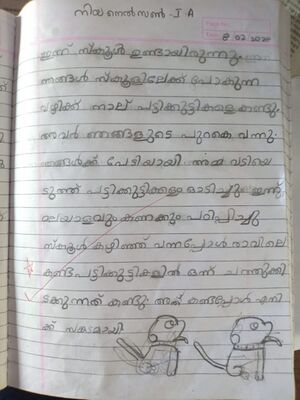 നിയ നെൽസൺ - I A
Page No:
Date: 8 02 2024
ഇന്ന് സ്കൂൾ ഉണ്ടായിരുന്നു.
ഞങ്ങൾ സ്കൂളിലേക്ക് പോകുന്ന
വഴിക്ക് നാല് പട്ടിക്കുട്ടികളെ കണ്ടു.
അവർ ഞങ്ങളുടെ പുറകെ വന്നു.
ഞങ്ങൾക്ക് പേടിയായി. അമ്മ വടിയെ
ടുത്ത് പട്ടിക്കുട്ടികളെ ഓടിച്ചു. ഇന്ന്
മലയാളവും കണക്കും പഠിപ്പിച്ചു
സ്കൂൾ കഴിഞ്ഞ് വന്നപ്പോൾ രാവിലെ
കണ്ട പട്ടിക്കുട്ടികളിൽ ഒന്ന് ചത്തുക്കി
ടക്കുന്നത് കണ്ടു. അത് കണ്ടപ്പോൾ എനി
ക്ക് സങ്കടമായി.